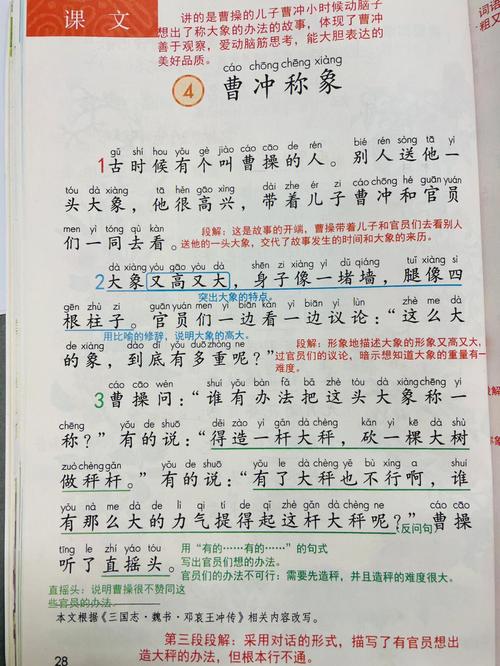 课文
讲的是曹操的儿子曹冲小时候动脑子
想出了称大象的办法的故事，体现了曹冲
善于观察，爱动脑筋思考，能大胆表达的
美好品质。
cáo chōng chēng xiàng
4 曹冲称象
gǔ shí hou yǒu gè jiào cáo cāo de rén bié rén sòng tā yì
1古时候有个叫曹操的人。别人送他一
tóu dà xiàng tā hěn gāo xìng dài zhe ér zi cáo chōng hé guān yuán
头大象，他很高兴，带着儿子曹冲和官员
men yì tóng qù kàn
们一同去看。
段解：这是故事的开端，曹操带着儿子和官员们去看别人
送他的一头大象，交代了故事发生的时间和大象的来历。
dà xiàng yòu gāo yòu dà shēn zi xiàng yì dǔ qiáng tuǐ xiàng sì
2大象又高又大，身子像一堵墙，腿像四
突出大象的特点。
gēn zhù zi guān yuán men yì biān kàn yì biān yì lùn zhè me dà
根柱子。官员们一边看一边议论：“这么大
用比喻的修辞，说明大象的高大。
de xiàng dào dǐ yǒu duō zhòng ne
的象，到底有多重呢？”
段解：形象地描述大象的形象又高又大，
过官员们的议论，暗示想知道大象的重量有一
难度。
cáo cāo wèn shuí yǒu bàn fǎ bǎ zhè tóu dà xiàng chēng yì
3曹操问：“谁有办法把这头大象称一
chēng yǒu de shuō děi zào yì gǎn dà chèng kǎn yì kē dà shù
称？”有的说：“得造一杆大秤，砍一棵大树
zuò chèng gǎn yǒu de shuō yǒu le dà chèng yě bù xíng a shuí
做秤杆。”有的说：“有了大秤也不行啊，谁
yǒu nà me dà de lì qi tí de qǐ zhè gǎn dà chèng ne cáo cāo
有那么大的力气提得起这杆大秤呢？”曹操
反问句
tīng le zhí yáo tóu
听了直摇头。
用“有的……有的……”的句式
写出官员们想的办法。
官员们的办法不可行：需要先造秤，并且造秤的难度很大。
直摇头：说明曹操很不赞同这
些官员的办法。
本文根据《三国志·魏书·邓哀王冲传》相关内容改写。
第三段段解：采用对话的形式，描写了有官员想出
造大秤的办法，但根本行不通。
28